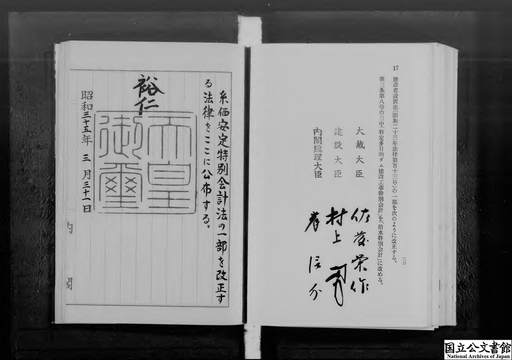 17 建設省設置法(昭和二十三年法律第百十三号)の一部を次のように改正する。
第三条第八号の三中「特定多目的ダム建設工事特別会計」を「治水特別会計」に改める。
大蔵大臣 佐藤栄作
建設大臣 村上勇
内閣総理大臣 岸信介
糸価安定特別会計法の一部を改正す
る法律をここに公布する。
裕仁
天皇
御璽
昭和三十五年三月三十一日
内閣
国立公文書館
National Archives of Japan